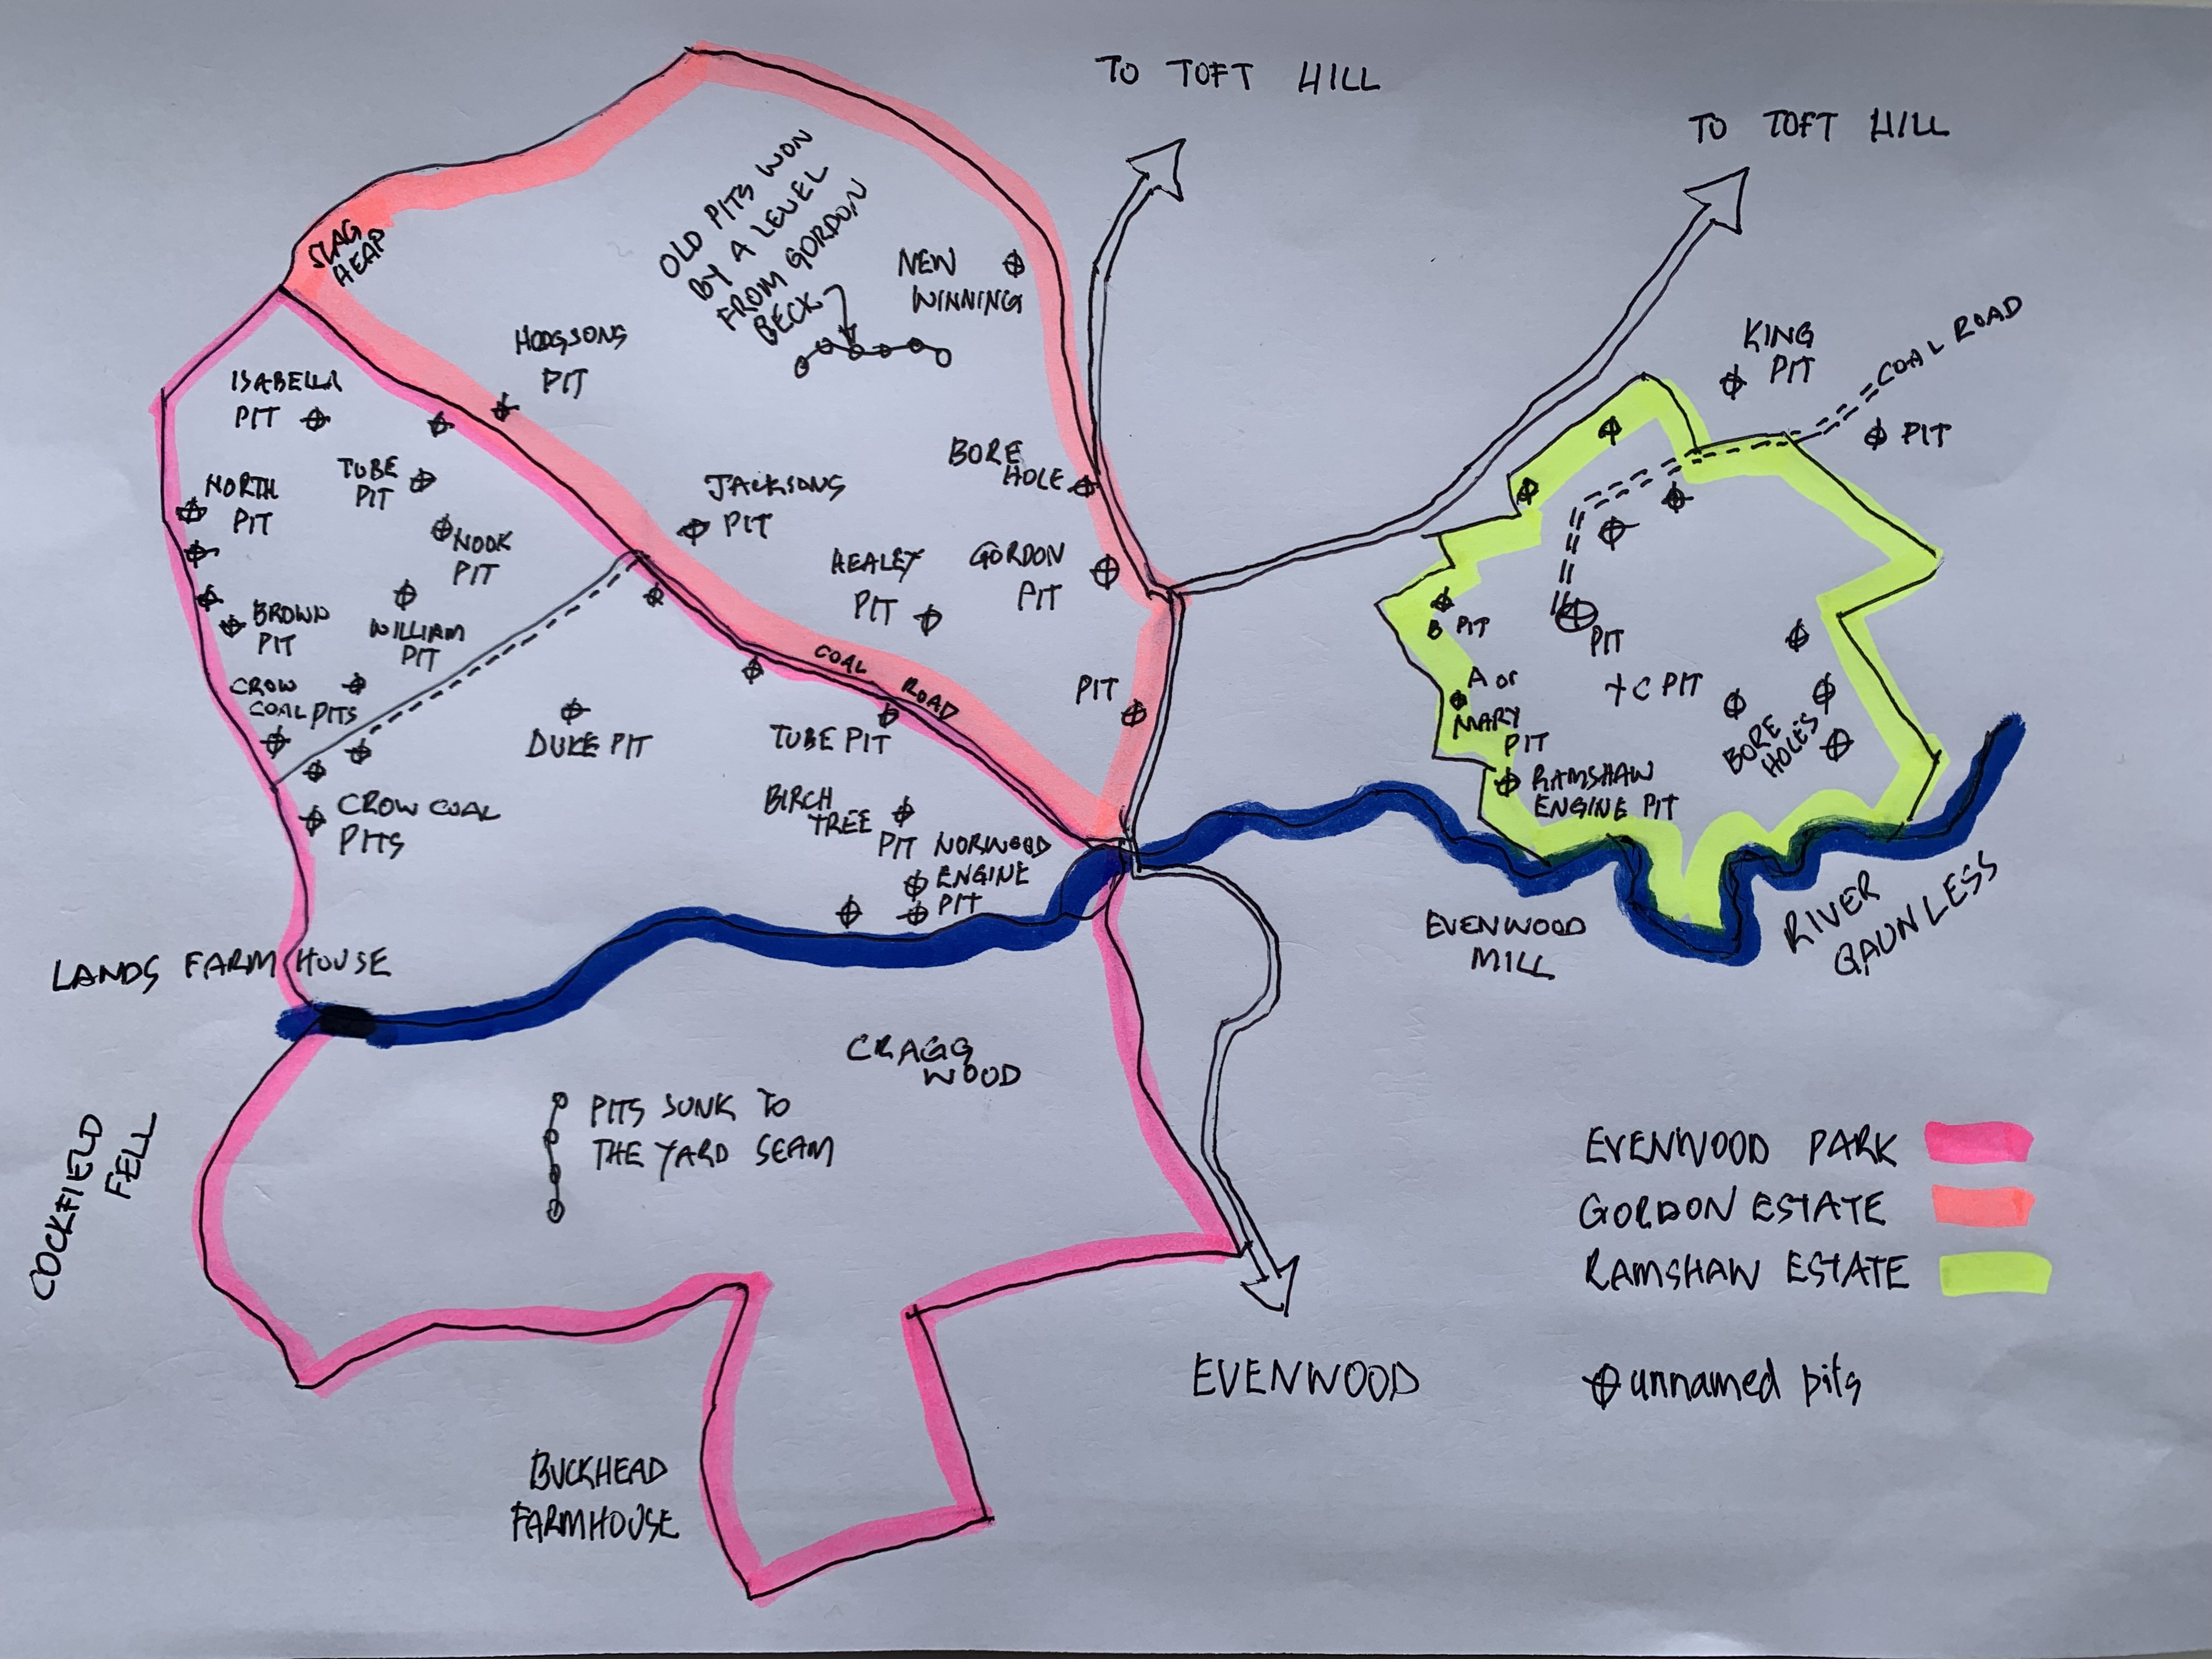 TO TOFT HILL
TO TOFT HILL
SLAG
HEAP
OLD PITS WON
BY A LEVEL
FROM GORDON
BECK
NEW
WINNING
HODGSONS
PIT
KING
PIT
COAL ROAD
PIT
ISABELLA
PIT
TUBE
PIT
NORTH
PIT
NOOK
PIT
JACKSONS
PIT
BORE
HOLE
HEALEY
PIT
GORDON
PIT
BROWN
PIT
WILLIAM
PIT
B PIT
PIT
COAL ROAD
PIT
+ C PIT
A or
MARY
PIT
CROW
COAL PITS
DUKE PIT
TUBE PIT
BORE
HOLES
RAMSHAW
ENGINE PIT
CROW COAL
PITS
BIRCH
TREE
PIT
NORWOOD
ENGINE
PIT
EVENWOOD
MILL
RIVER
GAUNLESS
LANDS FARM HOUSE
CRAGG
WOOD
PITS SUNK TO
THE YARD SEAM
COCKFIELD
FELL
EVENWOOD PARK
GORDON ESTATE
RAMSHAW ESTATE
EVENWOOD
unnamed pits
BUCKHEAD
FARMHOUSE